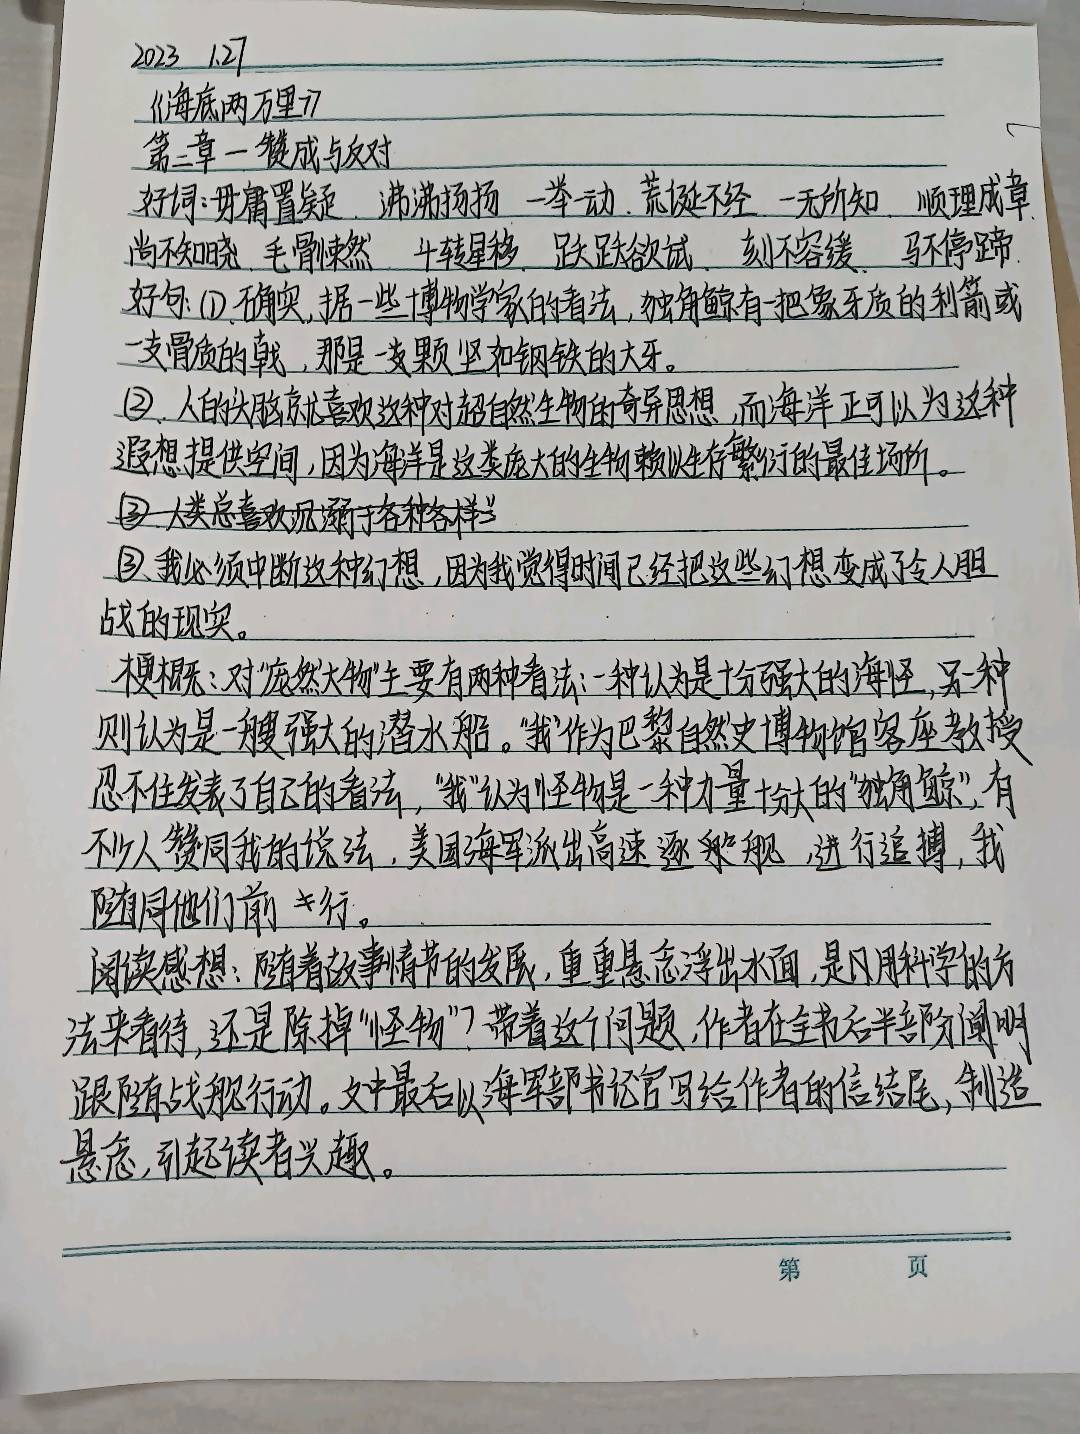 2023 1.27
《海底两万里》
第二章一赞成与反对
好词:毋庸置疑、沸沸扬扬 一举一动、荒诞不经 一无所知、顺理成章、
尚不知晓、毛骨悚然 斗转星移、跃跃欲试、刻不容缓、马不停蹄.
好句:①.确实,据一些博物学家的看法,独角鲸有一把象牙质的利箭或
一支骨质的戟,那是一支颗坚如钢铁的大牙。
②.人的头脑就喜欢这种对超自然生物的奇异思想,而海洋正可以为这种
遐想提供空间,因为海洋是这类庞大的生物赖以生存繁衍的最佳场所。
③人类总喜欢沉溺于各种各样
③、我必须中断这种幻想,因为我觉得时间已经把这些幻想变成了令人胆
战的现实。
梗概:对“庞然大物”主要有两种看法:一种认为是十分强大的海怪,另一种
则认为是一艘强大的潜水船。“我”作为巴黎自然史博物馆客座教授
忍不住发表了自己的看法,“我”认为怪物是一种力量十分大的“独角鲸”,有
不少人赞同我的说法,美国海军派出高速逐船舰,进行追捕,我
随同他们前行。
阅读感想:随着故事情节的发展,重重悬念浮出水面,是只用科学的方
法来看待,还是除掉“怪物”?带着这个问题,作者在全书后半部分阐明
跟随战舰行动。文中最后以海军部书记官写给作者的信结尾,制造
悬念,引起读者兴趣。
第 页